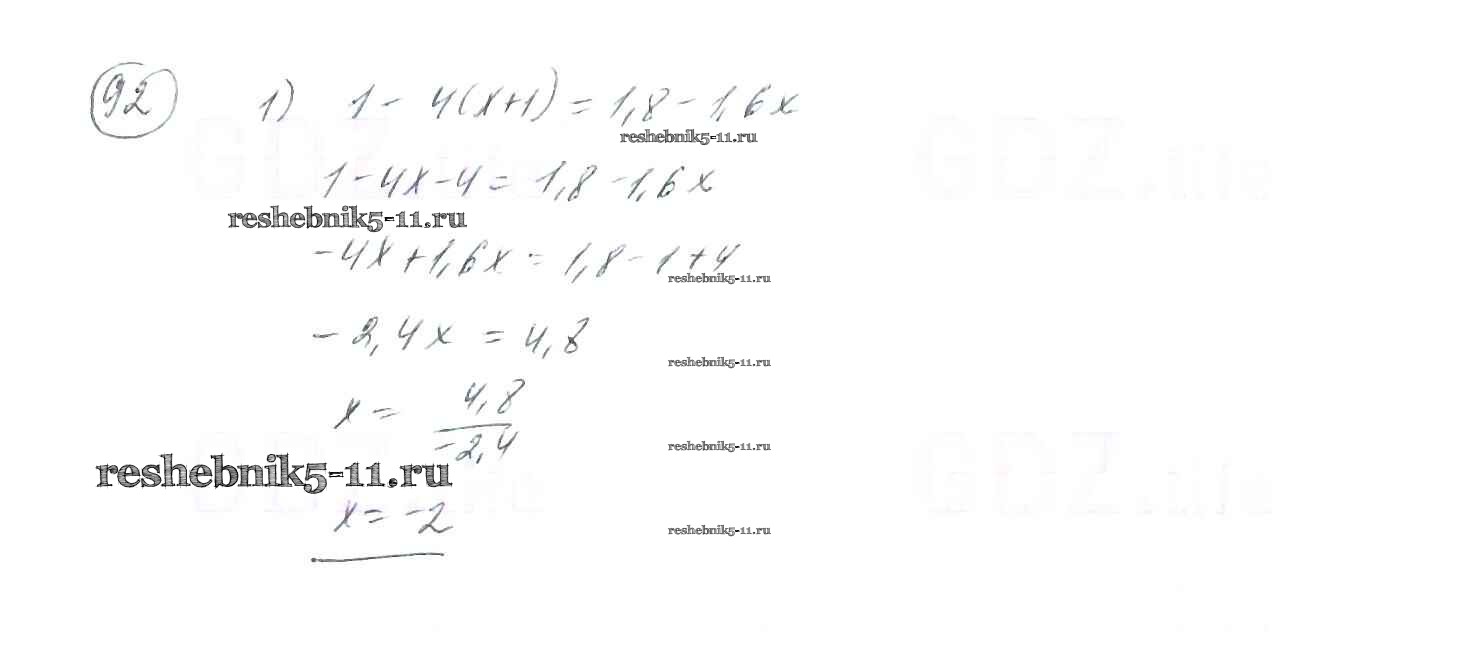 92 1) 1 - 4(x+1) = 1,8 - 1,6x
reshebnik5-11.ru
GDZ.life GDZ.life
1 - 4x - 4 = 1,8 - 1,6x
reshebnik5-11.ru
-4x + 1,6x = 1,8 - 1 + 4
reshebnik5-11.ru
-2,4x = 4,8
reshebnik5-11.ru
x = 4,8 / -2,4
reshebnik5-11.ru
reshebnik5-11.ru
GDZ.life GDZ.life
x = -2
reshebnik5-11.ru